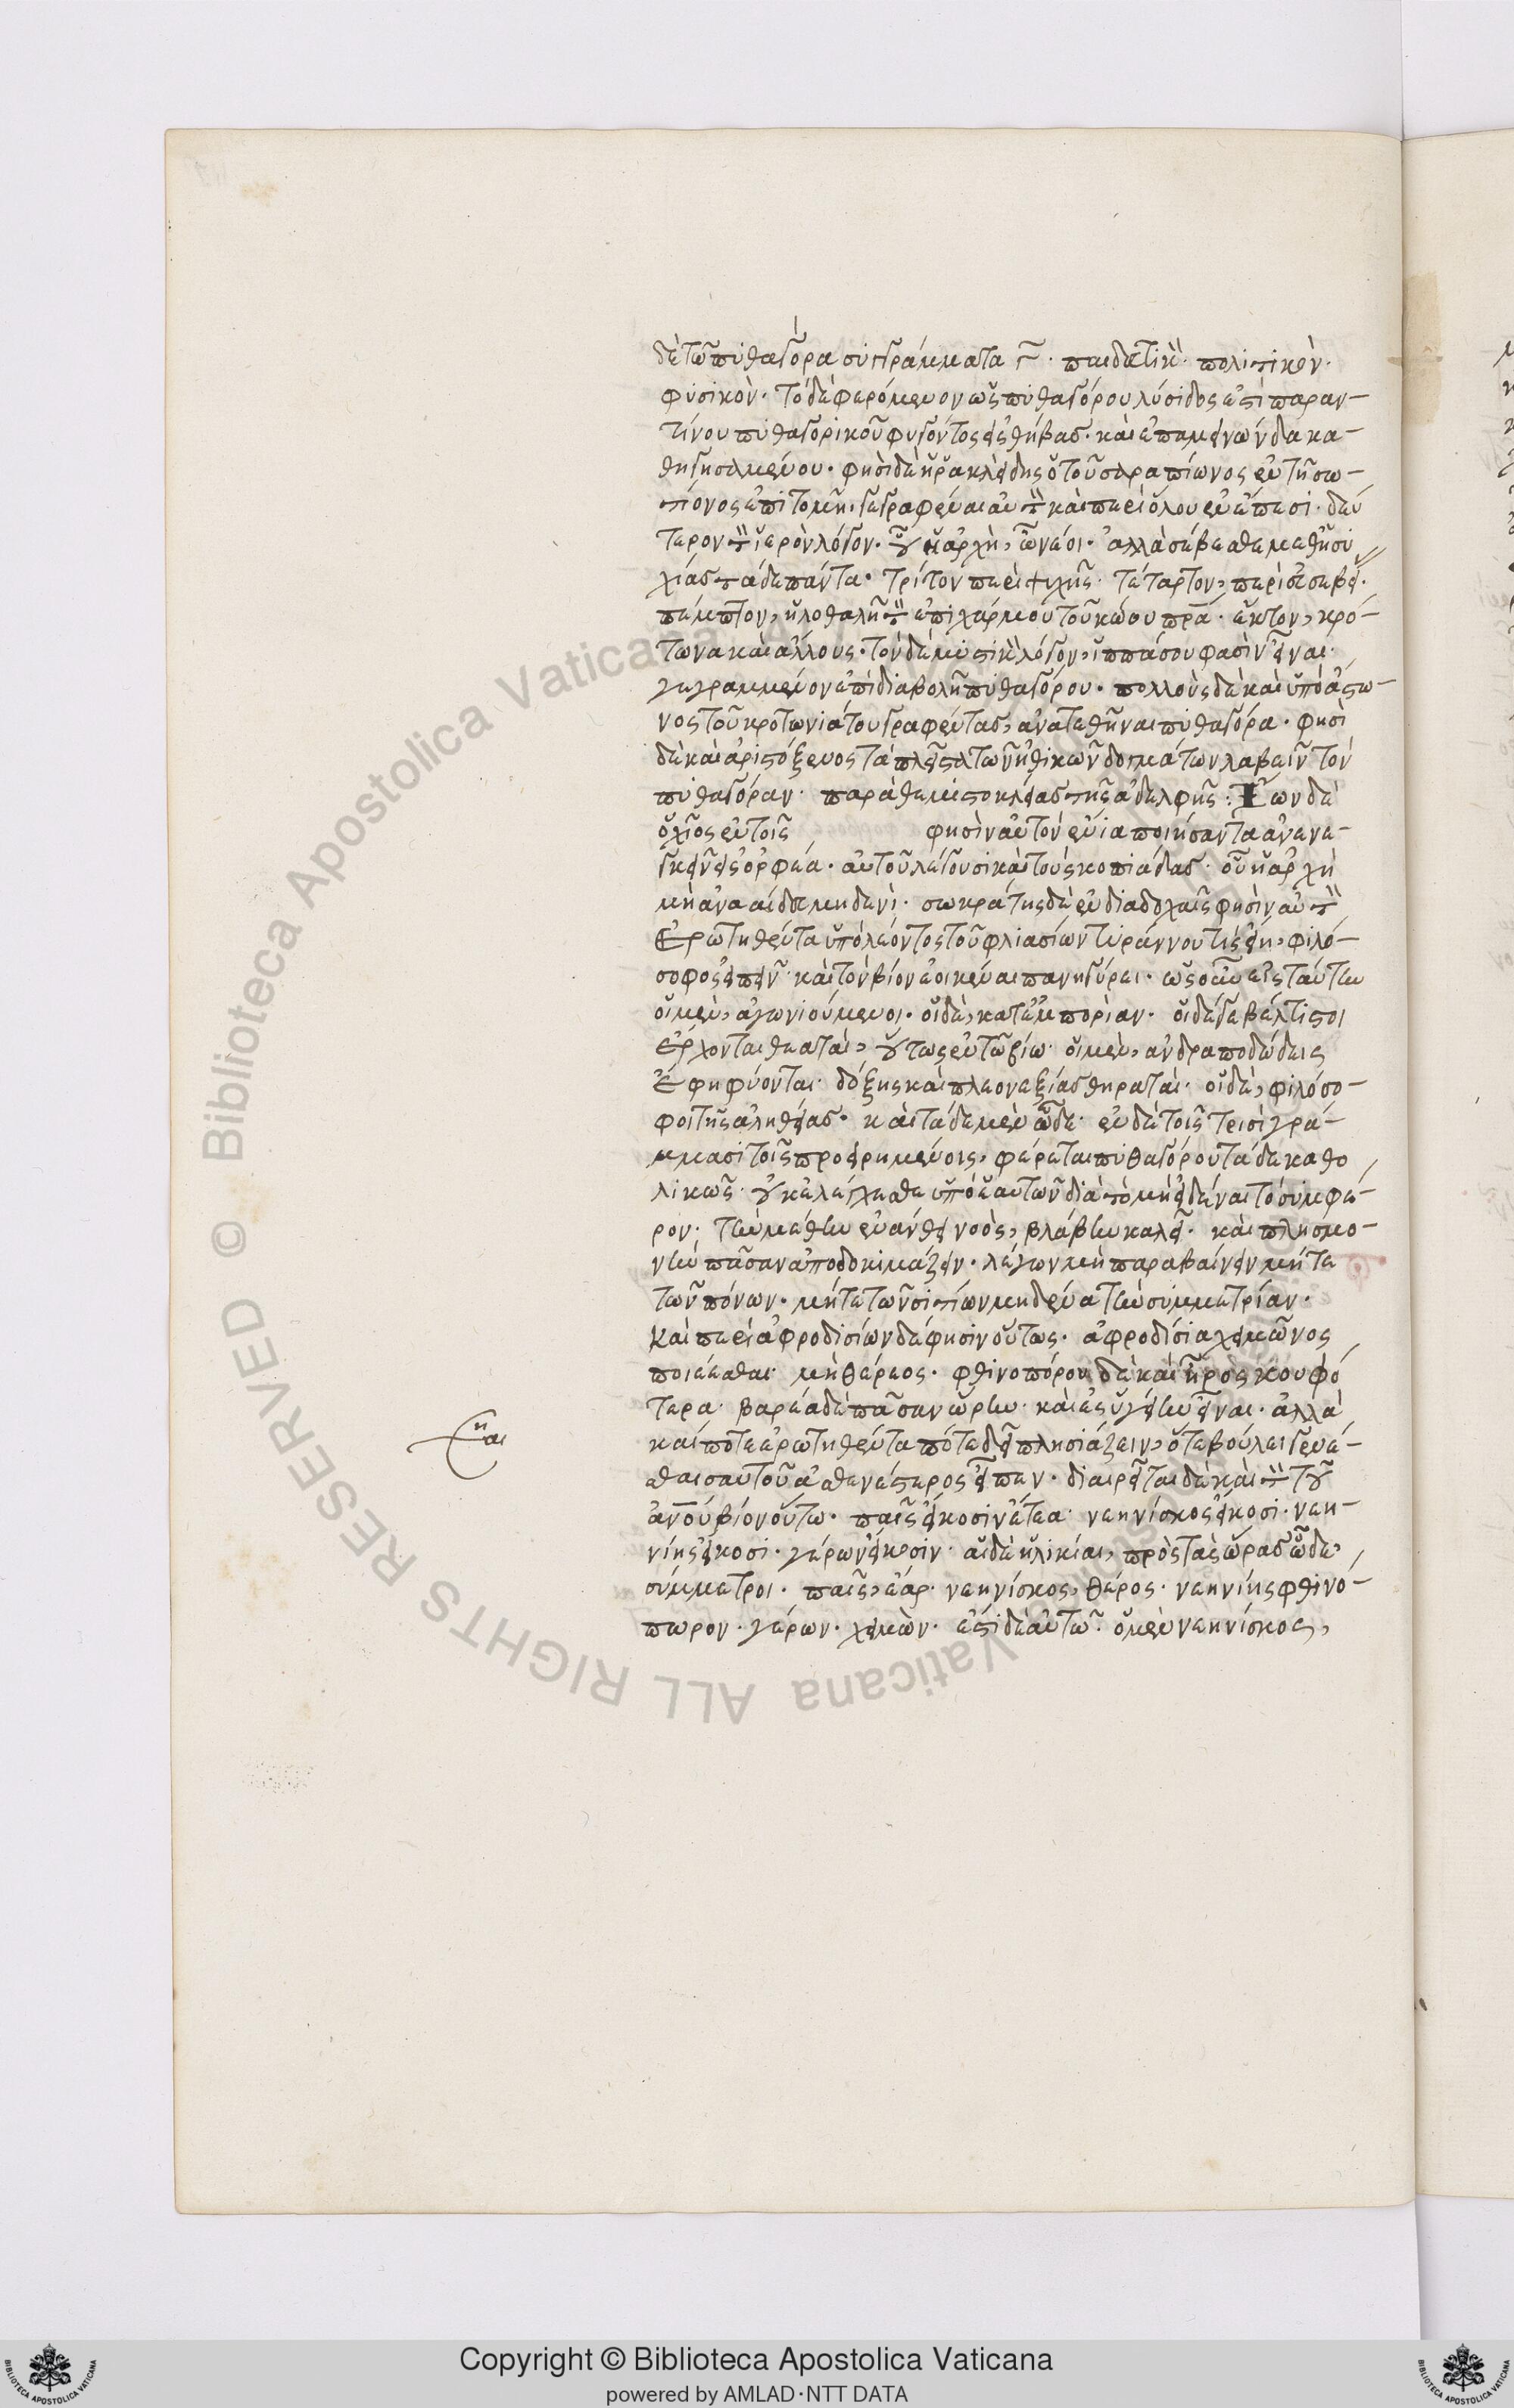 δὲ τῶ πυθαγόρα συγγράμματα γ̅. παιδευτικὸν. πολιτικὸν.
φυσικὸν. τὸ δὲ φερόμενον ὡς πυθαγόρου λύσιδος ἐστὶ ταραν-
τίνου πυθαγορικοῦ φυγόντος εἰς θήβας. καὶ ἐπαμεινώνδα κα-
θηγησαμένου. φησὶ δὲ ἡρακλείδης ὁ τοῦ σαραπίωνος ἐν τῆ σω-
τίονος ἐπιτομῆ. γεγραφέναι αὐτὸν καὶ περὶ ὅλου ἐν ἔπεσι. δεύ
τερον τὸν ἱερὸν λόγον. οὗ ἡ ἀρχὴ, ὦ νέοι. ἀλλὰ σέβεσθε μεθ' ἡσυ
χίας τάδε πάντα. τρίτον περὶ ψυχῆς. τέταρτον, περὶ εὐσεβεί.
πέμπτον, ἡλοθαλῆ τὸν ἐπιχάρμου τοῦ κώου πρ̅α. ἕκτον, κρό-
τωνα καὶ ἄλλους. τὸν δὲ μυστικὸν λόγον, ἱππάσου φασὶν εἶναι.
γεγραμμένον ἐπὶ διαβολῆ πυθαγόρου. πολλοὺς δὲ καὶ ὑπὸ ἄστω-
νος τοῦ κροτωνιάτου γραφέντας, ἀνατεθῆναι πυθαγόρα. φησὶ
δὲ καὶ ἀριστόξενος τὰ πλεῖστα τῶν ἠθικῶν δογμάτων λαβεῖν τὸν
πυθαγόραν. παρὰ θεμιστοκλείας τῆς ἀδελφῆς: Ἴων δὲ
ὁ χῖος ἐν τοῖς φησὶν αὐτὸν ἔνια ποιήσαντα ἀνενε-
γκεῖν εἰς ὀρφέα. αὐτοῦ λέγουσι καὶ τοὺς κοπιάδας. οὗ ἡ ἀρχὴ
μὴ ἀνααίδευ μηδενὶ. σωκράτης δὲ ἐν διαδοχαῖς φησὶν αὐτὸν
Ἐρωτηθέντα ὑπὸ λέοντος τοῦ φλιασίων τυράννου τίς εἴη, φιλό-
σοφος εἰπεῖν. καὶ τὸν βίον ἐοικέναι πανηγύρει. ὡς οὖν εἰς ταύτην
οἱ μὲν, ἀγωνιούμενοι. οἱ δὲ, κατ' ἐμπορίαν. οἱ δέ γε βέλτιστοι
ἔρχονται θεαταὶ, οὕτως ἐν τῶ βίω. οἱ μὲν, ἀνδραποδώδεις
Ἐφηφύονται. δόξης καὶ πλεονεξίας θηραταὶ. οἱ δὲ, φιλόσο-
φοι τῆς ἀληθείας. καὶ τάδε μὲν ὧδε. ἐν δὲ τοῖς τρισὶ γρά-
μμασι τοῖς προειρημένοις, φέρεται πυθαγόρου τάδε καθο
λικῶς. οὐκ ἐλέγχεσθε ὑπὸ ἑαυτῶν διὰ τὸ μὴ εἰδέναι τὸ συμφέ-
ρον. τὴν μέθην ἐν ἀνθεῖ νοὸς, βλάβην καλεῖ. καὶ πλησμο-
νὴν πᾶσαν ἀποδοκιμάζειν. λέγων μὴ παραβαίνειν μήτε
τῶν πόνων. μήτε τῶν σιτίων μηδένα τὴν συμμετρίαν.
καὶ περὶ ἀφροδισίων δέ φησιν οὕτως. ἀφροδίσια χειμῶνος
ποιέεσθαι. μὴ θέρεος. φθινοπόρου δὲ καὶ ἦρος κουφό
τερα. βαρέα δὲ πᾶσαν ὥρην. καὶ ἐς ὑγείην εἶναι. ἀλλὰ
καί ποτε ἐρωτηθέντα πότε δεῖ πλησιάζειν, ὅτε βούλει γενέ-
σθαι σαυτοῦ ἀσθενέστερος εἶπεν. διαιρεῖται δὲ καὶ τὸν τοῦ
ἀν̅ου βίον οὕτω. παῖς εἴκοσιν ἔτεα. νεηνίσκος εἴκοσι. νεη-
νίης εἴκοσι. γέρων εἴκοσιν. αἱ δὲ ἡλικίαι, πρὸς τὰς ὥρας ὧδε,
σύμμετροι. παῖς, ἔαρ. νεηνίσκος, θέρος. νεηνίης φθινό-
πωρον. γέρων. χειμὼν. ἐστὶ δὲ αὐτῶ. ὁ μὲν νεηνίσκος,
Copyright © Biblioteca Apostolica Vaticana
powered by AMLAD·NTT DATA